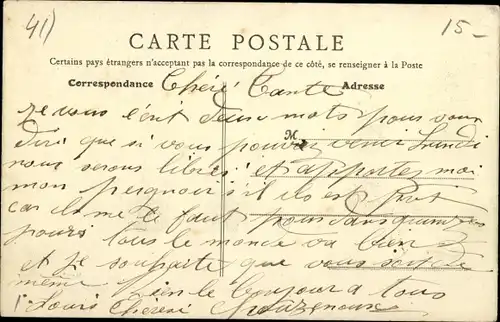 41)
15-
CARTE POSTALE
Certains pays étrangers n'acceptant pas la correspondance de ce côté, se renseigner à la Poste
Correspondance
Adresse
Chéré Tante
je vous écrit deux mots pour vous
M
dire que si vous pouviez venir Lundi
nous serons libres et apportez moi
mon peignoir s'il ils est Pret
car il me le faut pour dans
jours tous le monde va bien
et je souhaite que vous soyez de
même bien le bonjour a tous